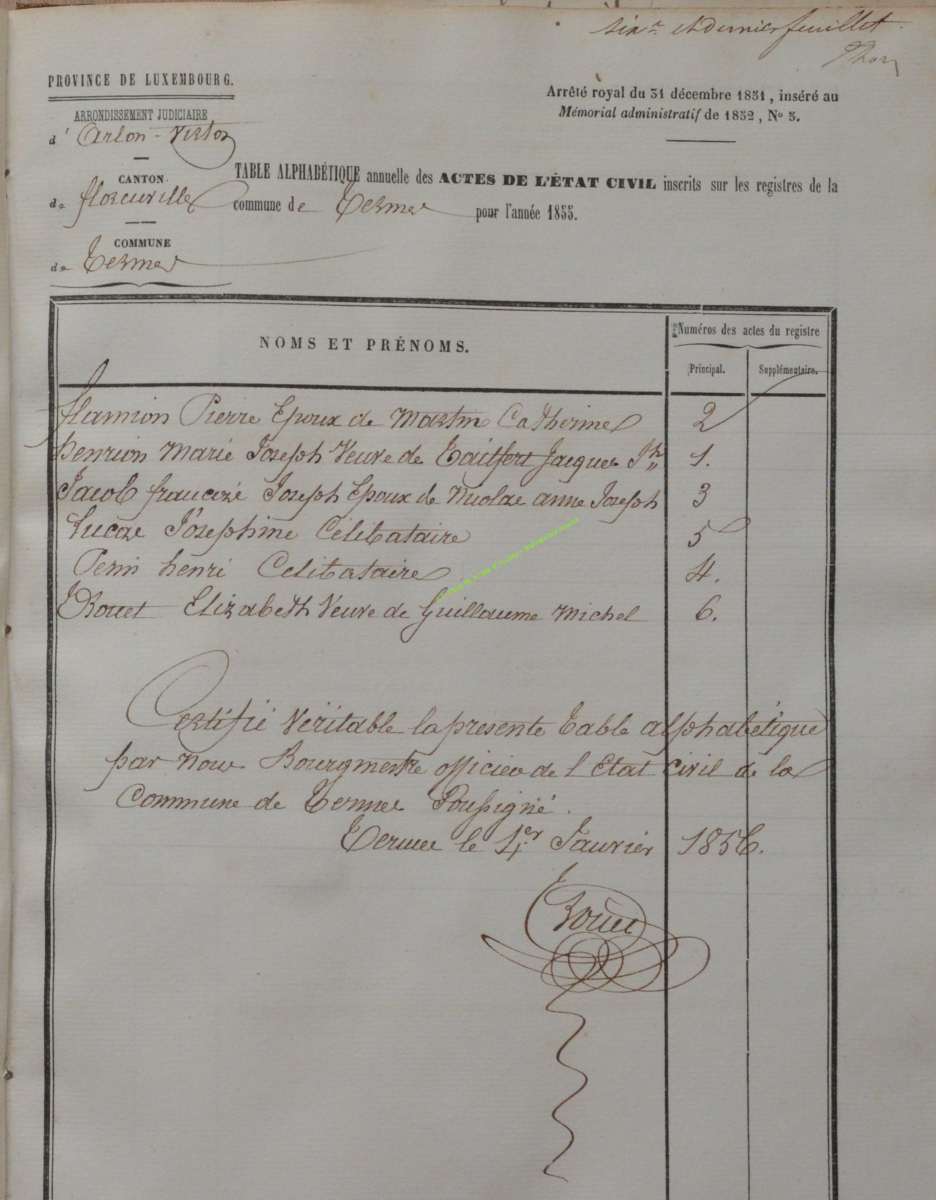 six.e et dernier feuillet
PROVINCE DE LUXEMBOURG.
ARRONDISSEMENT JUDICIAIRE
d' Arlon-Virton
CANTON
de florenville
COMMUNE
de Termes
Arrêté royal du 31 décembre 1851, inséré au
Mémorial administratif de 1852, No 3.
TABLE ALPHABÉTIQUE annuelle des ACTES DE L'ÉTAT CIVIL inscrits sur les registres de la
commune de Termes pour l'année 1855.
NOMS ET PRÉNOMS.
Numéros des actes du registre
Principal. Supplémentaire.
flamion Pierre Epoux de Martin Catherine 2
henrion Marie Joseph Veuve de Tailfert Jacques Jh 1.
Jacob francoise Joseph Epoux de Nicolas anne Joseph 3
Lucas Josephine Célibataire 5
henri Celibataire 4.
Trouet Elizabeth Veuve de Guillaume Michel 6.
Certifié Véritable la présente Table alphabétique
par nous Bourgmestre officier de l'Etat civil de la
Commune de Termes Soussigné.
Termes le 4er Janvier 1856.